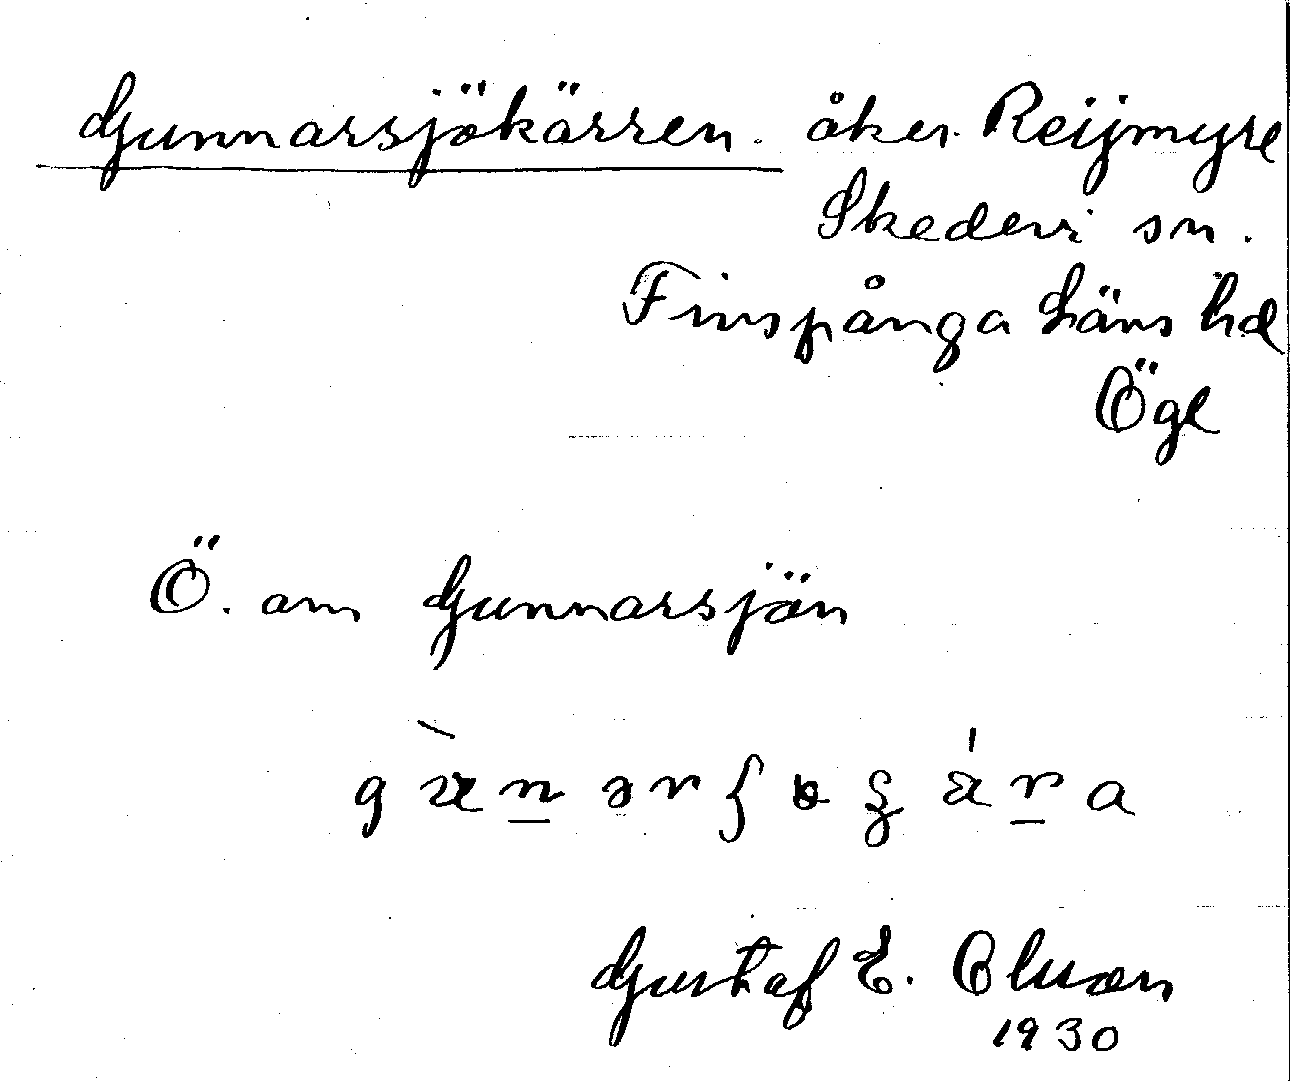 Gunnarsjökärren. åker. Reijmyre
Skedevi sn.
Finspånga Läns hd
Ögl
Ö. om Gunnarsjön
Gustaf E. Olsson
1930